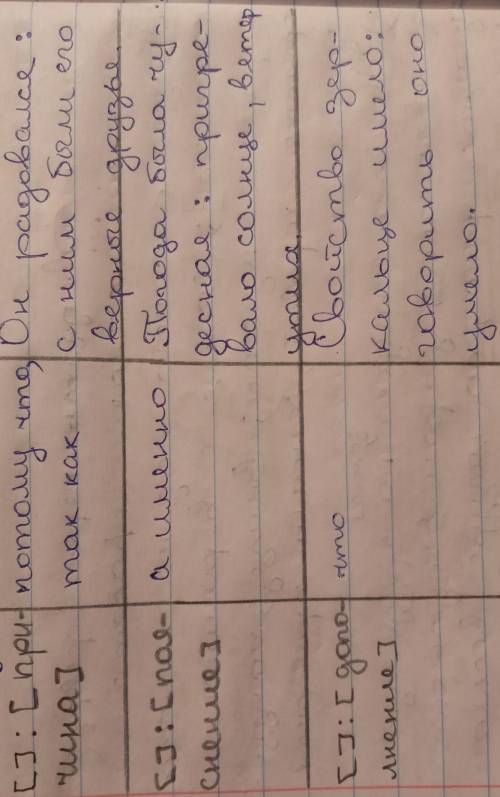 [ ] : [ при-
чина]
потому что,
так как
Он радовался :
с ним были его
верные друзья.
[ ] : [ поя-
снение]
а именно
Погода была чу-
десная : пригре-
вало солнце, ветер
утих.
[ ] : [ допо-
лнение]
что
Свойство зер-
кальце имело:
говорить оно
умело.